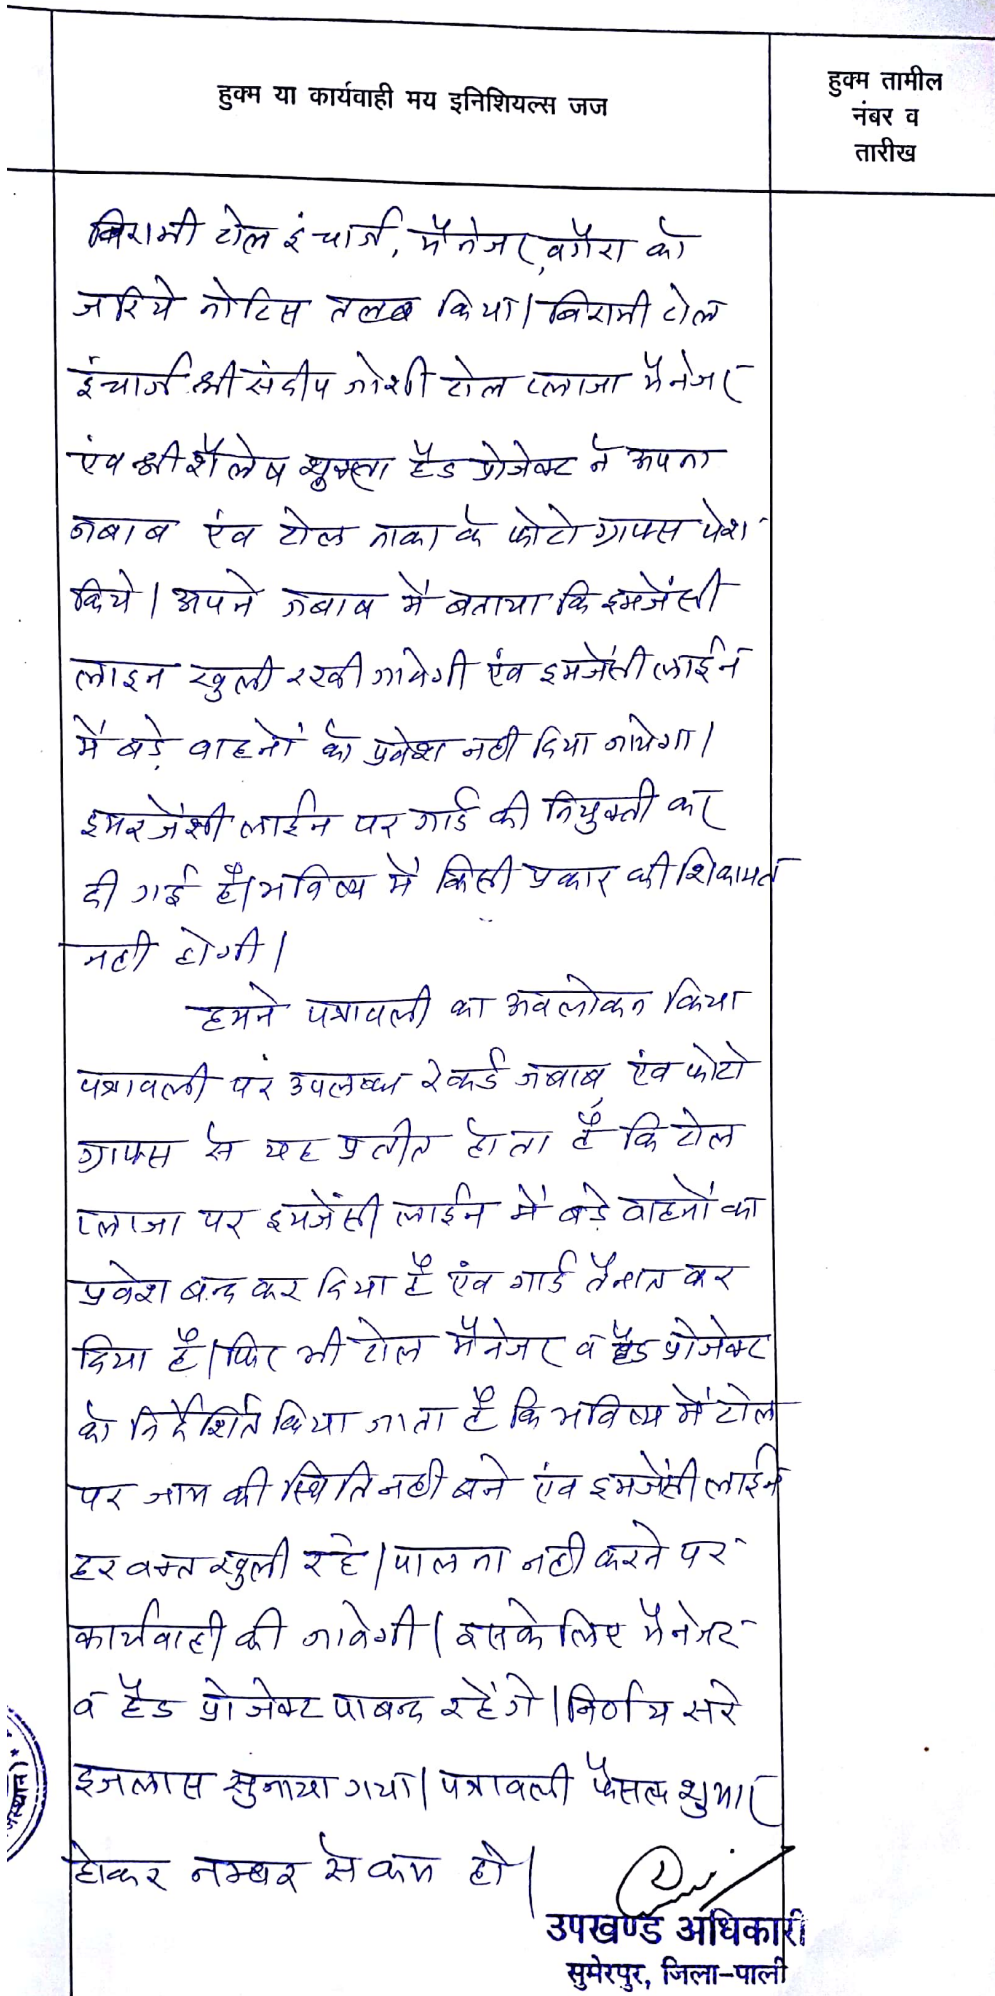 हुक्म या कार्यवाही मय इनिशियल्स जज
हुक्म तामील
नंबर व
तारीख
बिरामी टोल इंचार्ज, मैनेजर, वगैरा को
जरिये नोटिस तलब किया। बिरामी टोल
इंचार्ज श्री संदीप जोशी टोल प्लाजा मैनेजर
एंव श्री शैलेष शुक्ला हैड प्रोजेक्ट ने अपना
जबाब एंव टोल नाका के फोटो ग्राफ्स पेश
किये। अपने जबाब में बताया कि इमर्जेंसी
लाइन खुली रखी जावेगी एंव इमर्जेंसी लाईन
में बड़े वाहनों को प्रवेश नही दिया जायेगा।
इमरजेंसी लाईन पर गार्ड की नियुक्ती कर
दी गई है। भविष्य में किसी प्रकार की शिकायत
नही होगी।
हमने पत्रावली का अवलोकन किया
पत्रावली पर उपलब्ध रेकर्ड जबाब एंव फोटो
ग्राफ्स से यह प्रतीत होता है कि टोल
प्लाजा पर इमर्जेंसी लाईन में बड़े वाहनों का
प्रवेश बन्द कर दिया है एंव गार्ड तैनात कर
दिया है। फिर भी टोल मैनेजर व हैड प्रोजेक्ट
को निर्देशित किया जाता है कि भविष्य में टोल
पर जाम की स्थिति नही बने एंव इमर्जेंसी लाईन
हर वक्त खुली रहे। पालना नही करने पर
कार्यवाही की जावेगी। इसके लिए मैनेजर
व हैड प्रोजेक्ट पाबन्द रहेंगे। निर्णय सरे
इजलास सुनाया गया। पत्रावली फैसल शुमार
होकर नम्बर से कम हो।
उपखण्ड अधिकारी
सुमेरपुर, जिला-पाली